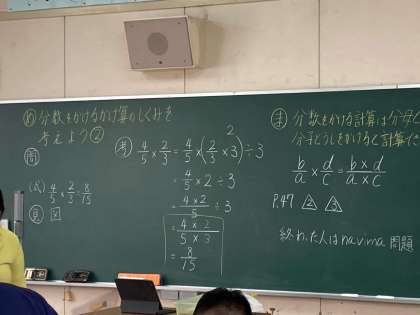 め 分数をかけるかけ算のしくみを
考えよう②
問
(式) 4/5 × 2/3 = 8/15
見 図
考 4/5 × 2/3 = 4/5 × (2/3 × 3) ÷ 3
2
= 4/5 × 2 ÷ 3
= 4×2/5 ÷ 3
= 4×2/5×3
= 8/15
ま 分数をかける計算は分母と
分子どうしをかけると計算
b/a × d/c = b×d/a×c
P.47 △2 △3
終わった人は navima 問題